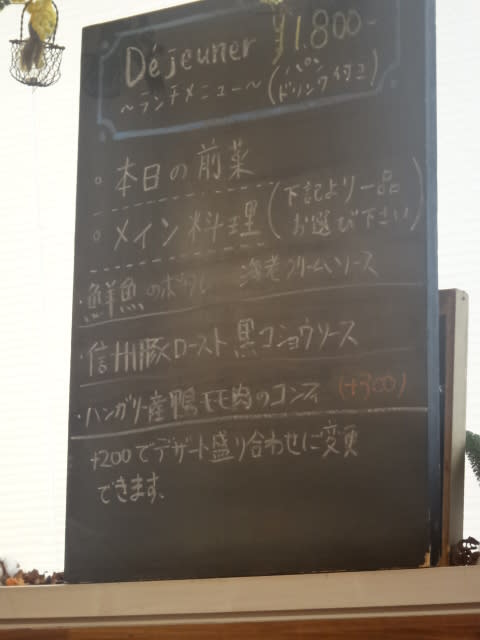 Déjeuner ¥1.800-
~ランチメニュー~(パン
ドリンク付き)
。本日の前菜
。メイン料理(下記より一品
お選び下さい)
・鮮魚のポワレ 海老クリームソース
・信州豚ロースト黒コショウソース
・ハンガリー産鴨モモ肉のコンフィ (+300)
+200でデザート盛り合わせに変更
できます。